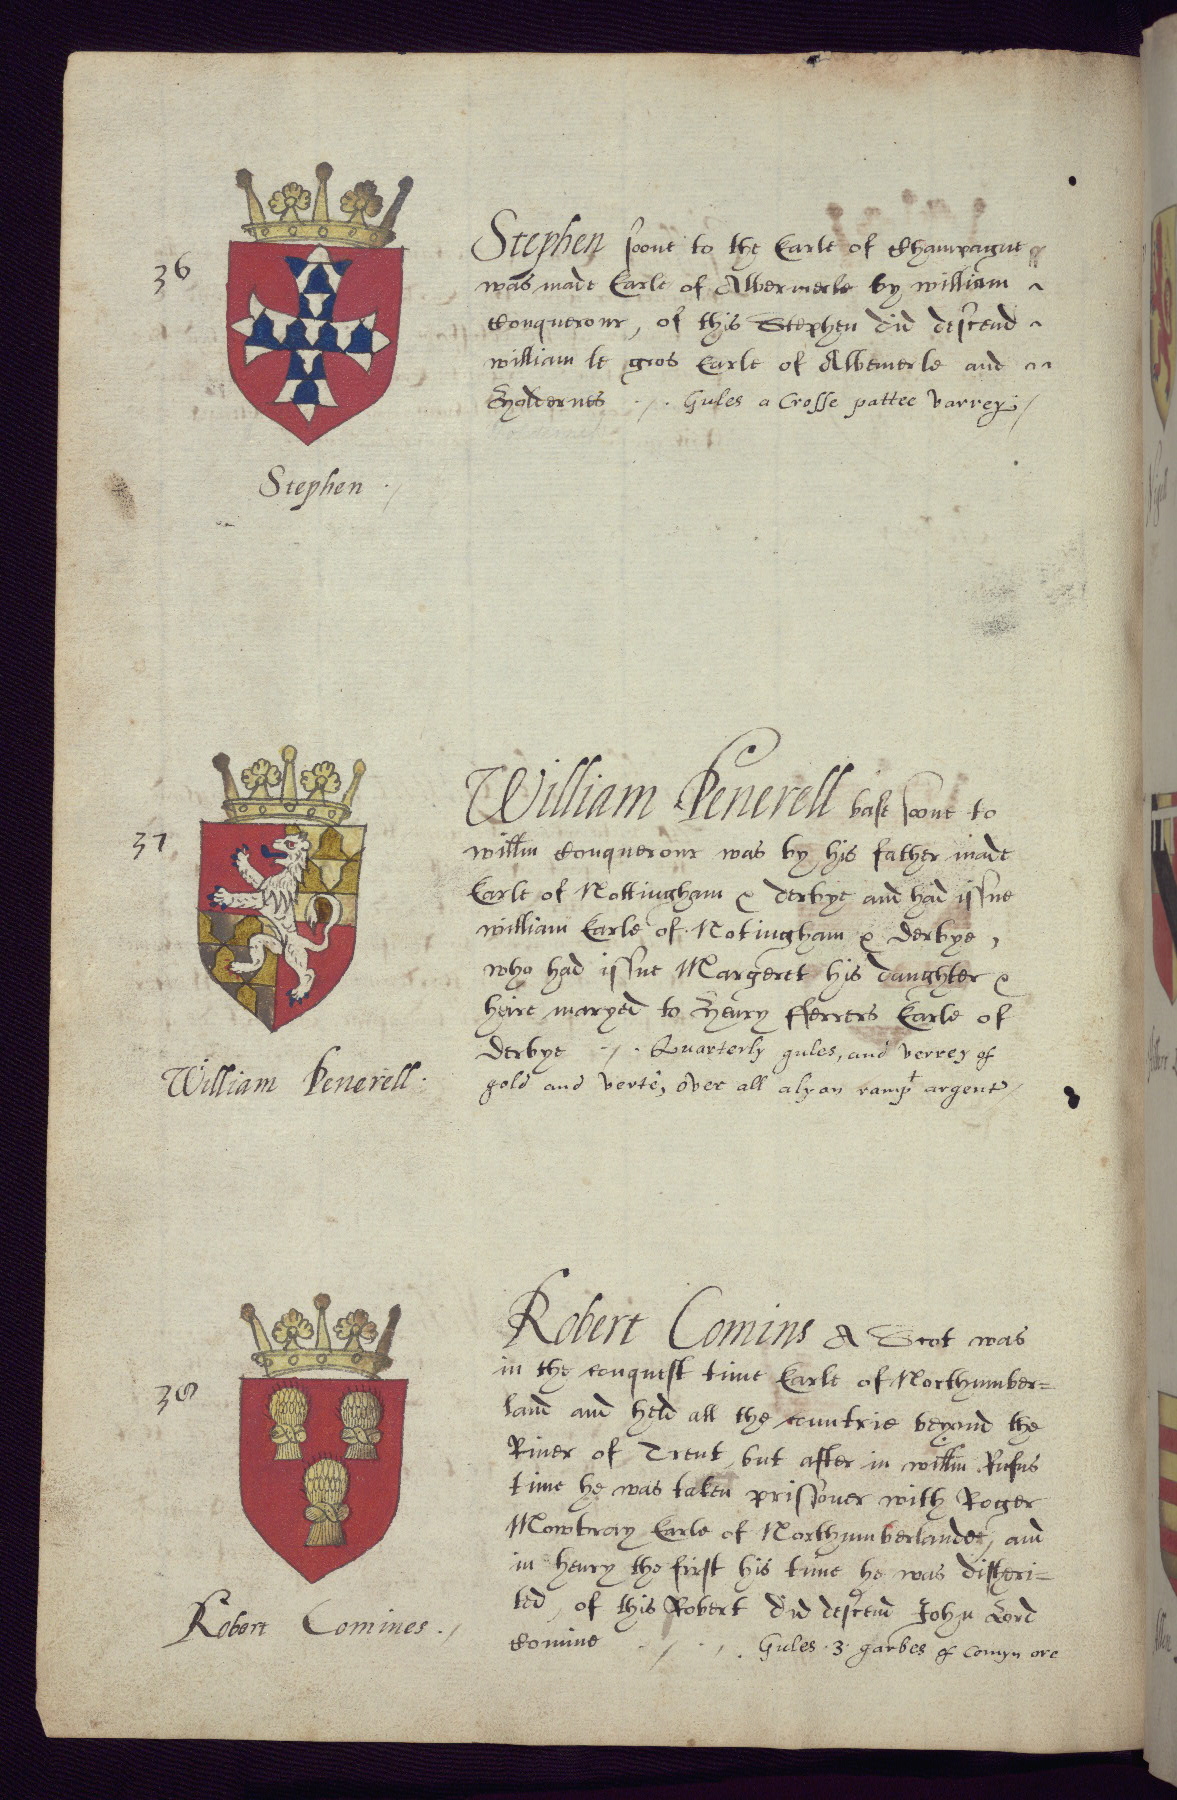 36
Stephen soone to the Earle of Champagne
was made Earle of Albermerle by william
Conquerour, of this Stephen did descend
william le gros Earle of Albemerle and
Holdernes Gules a Crosse pattee varrey
Stephen
37
William Peuerell bast soone to
willm Conquerour was by his father made
Earle of Nottingham & derbye and had issue
william Earle of Notingham & derbye,
who had issue Margeret his daughter &
heire maryed to Henry fferrers Earle of
derbye Quarterly gules, and verrey of
gold and verte, over all a lyon rampt argent
William Peuerell
38
Robert Comins A Scot was
in the conquest time Earle of Northumber=
land and held all the countrie beyond the
Riuer of Trent, but after in willm Rufus
time he was taken prissoner with Roger
Mowbray Earle of Northumberlande, and
in henry the first his time he was disheri=
ted, of this Robert did descend John Lord
Comine Gules 3 garbes of comyn ore
Robert Comines